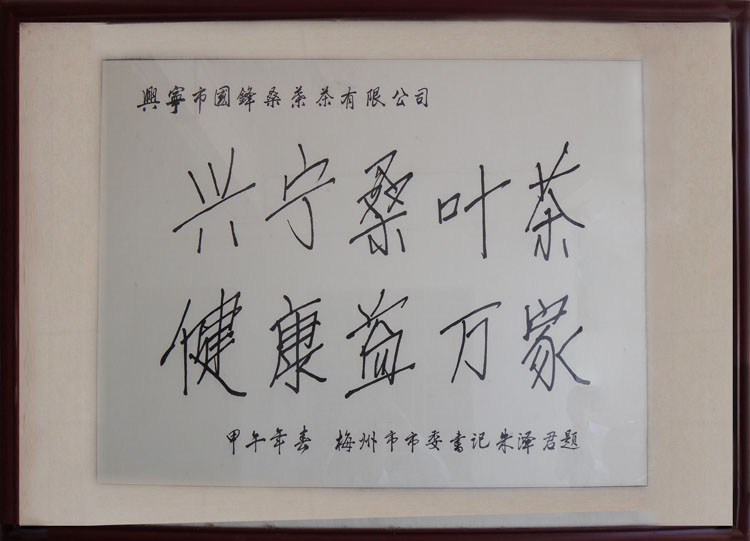 興寧市國鋒桑葉茶有限公司
兴宁桑叶茶
健康益万家
甲午年春 梅州市市委書记朱泽君题